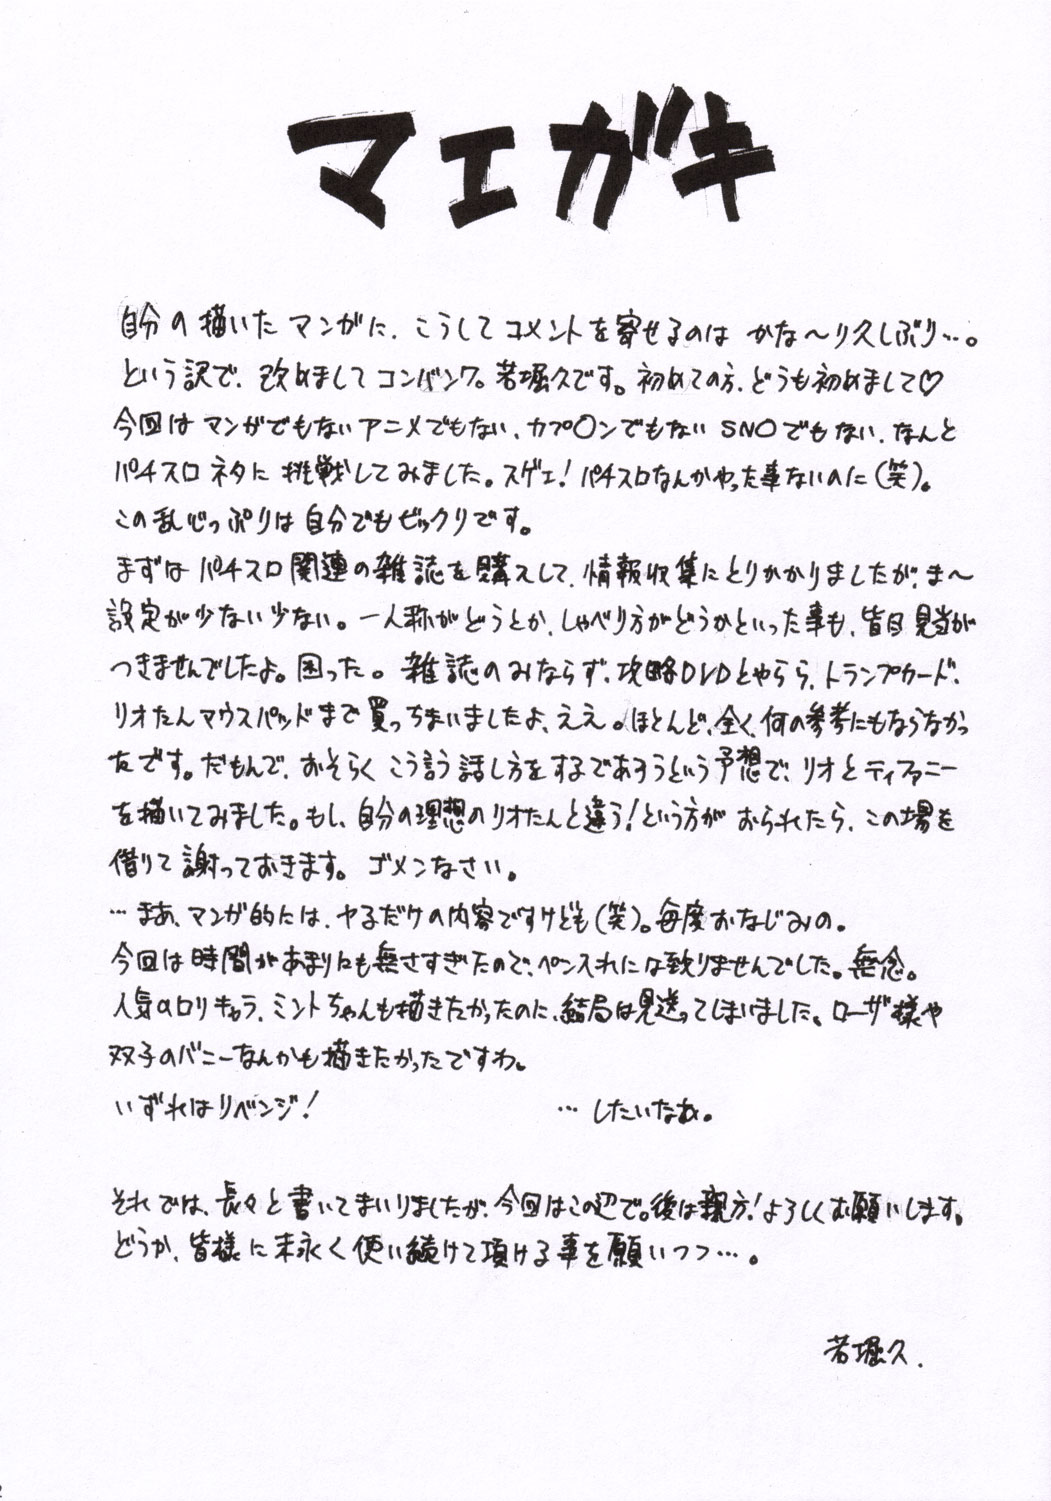 マエガキ
自分の描いたマンガに、こうしてコメントを寄せるのは かな〜り久しぶり…。
という訳で、改めましてコンバンワ。若堀久です。初めての方、どうも初めまして♡
今回はマンガでもないアニメでもない、カプ〇ンでもないSN〇でもない、なんと
パチスロネタに挑戦してみました。スゲェ!パチスロなんかやった事ないのに(笑)。
この乱心っぷりは自分でもビックリです。
まずはパチスロ関連の雑誌を購入して、情報収集にとりかかりましたが、ま〜
設定が少ない少ない。一人称がどうとか、しゃべり方がどうかといった事も、皆目見当が
つきませんでしたよ。困った。雑誌のみならず、攻略DVDとやらら、トランプカード、
リオたんマウスパッドまで買っちまいましたよ、ええ。ほとんど、全く、何の参考にもならなかっ
たです。だもんで、おそらくこう言う話し方をするであろうという予想で、リオとティファニー
を描いてみました。もし、自分の理想のリオたんと違う!という方がおられたら、この場を
借りて謝っておきます。ゴメンなさい。
…まあ、マンガ的には、ヤるだけの内容ですけども(笑)。毎度おなじみの。
今回は時間があまりにも無さすぎたので、ペン入れには致りませんでした。無念。
人気のロリキャラ、ミントちゃんも描きたかったのに、結局は見送ってしまいました。ローザ様や
双子のバニーなんかも描きたかったですわ。
いずれはリベンジ! …したいなぁ。
それでは、長々と書いてまいりましたが、今回はこの辺で。後は親方!よろしくお願いします。
どうか、皆様に末永く使い続けて頂ける事を願いつつ…。
若堀久.
2